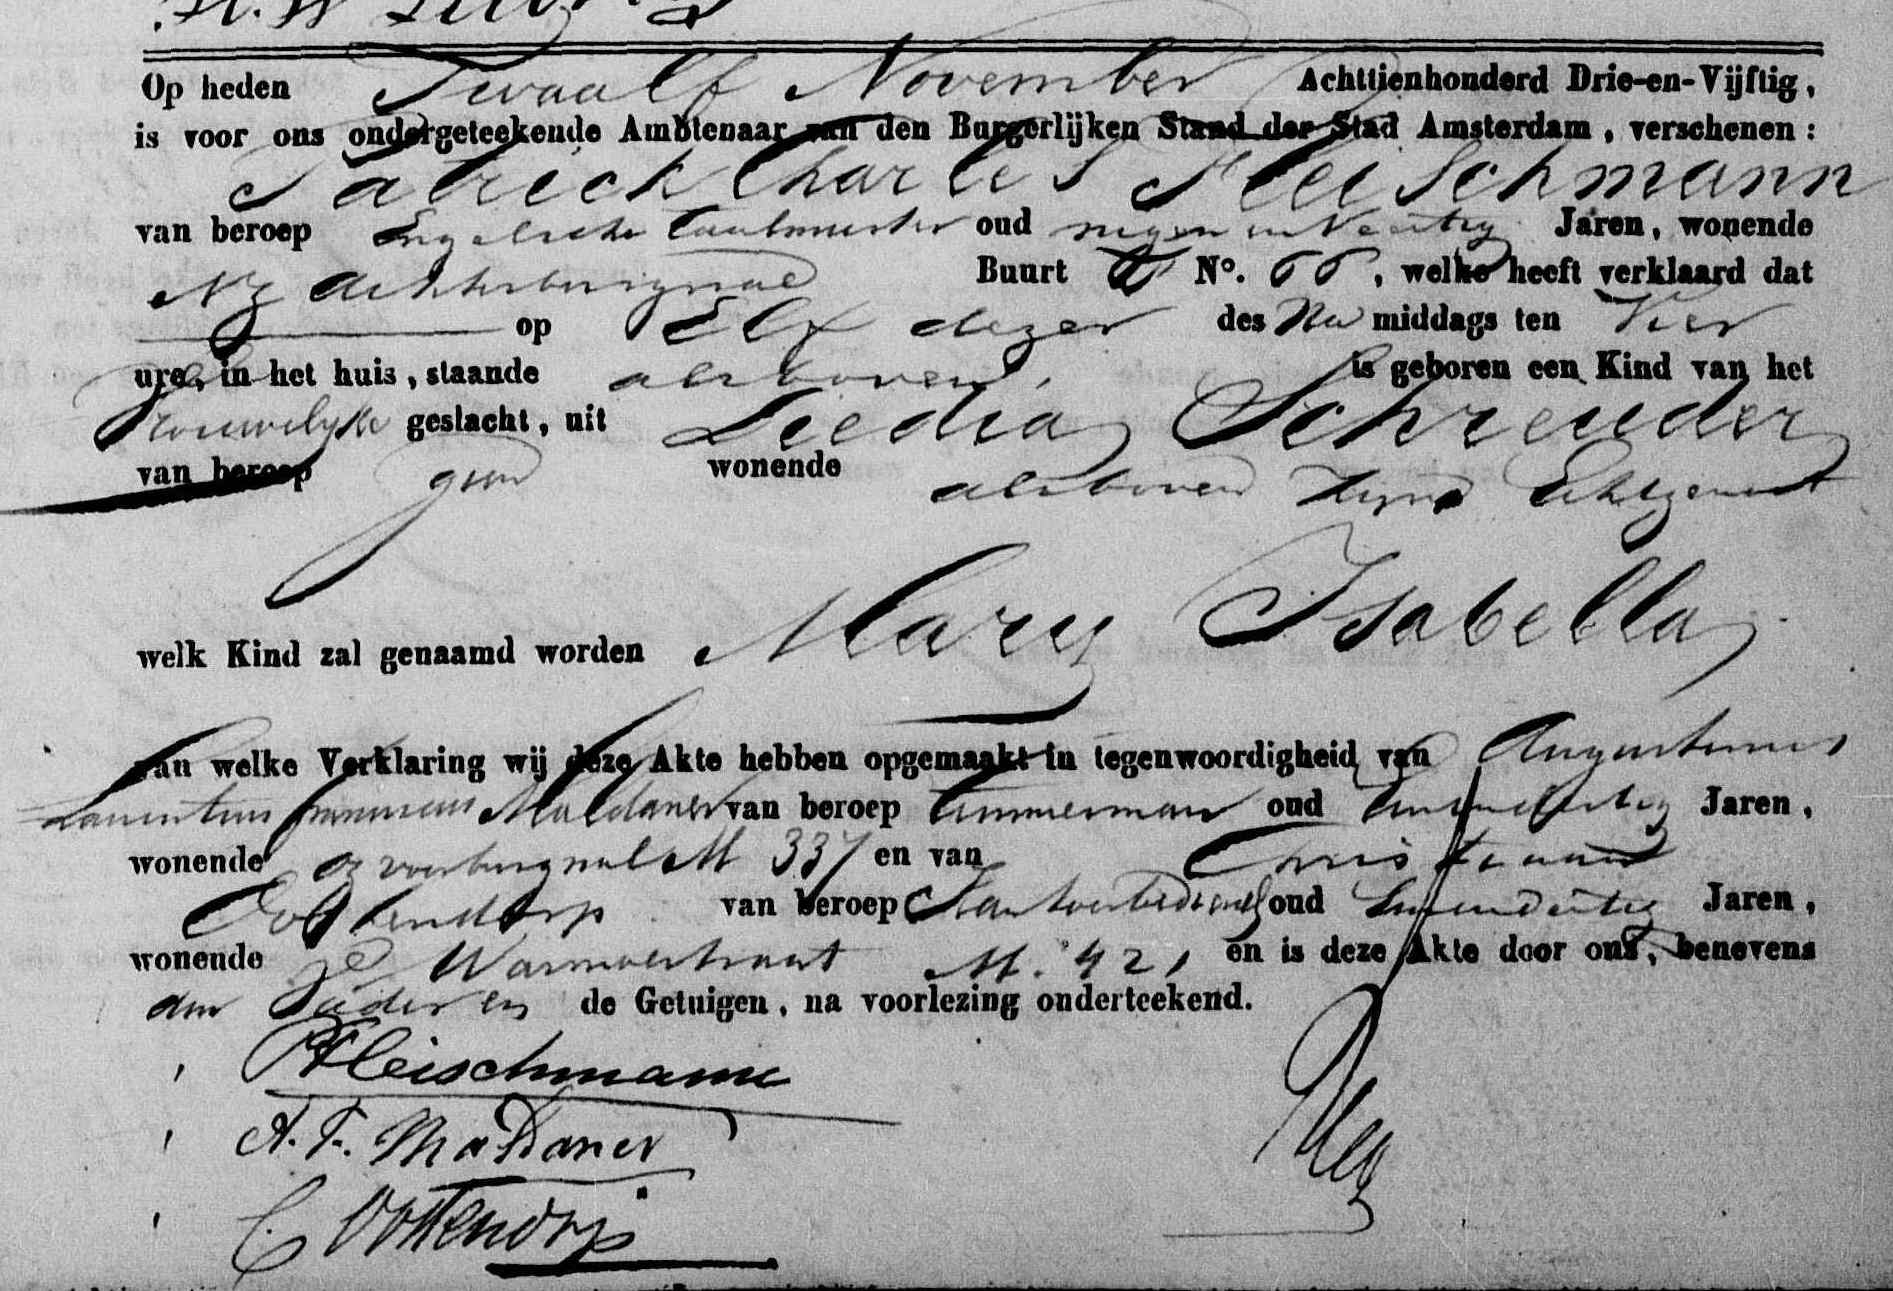 Op heden Twaalf November Achttienhonderd Drie-en-Vijftig,
is voor ons ondergeteekende Ambtenaar van den Burgerlijken Stand der Stad Amsterdam, verschenen:
Patrick Charles Fleischmann
van beroep Engelsche taalmeester oud negen en Veertig Jaren, wonende
NZ Achterburgwal Buurt No. 66, welke heeft verklaard dat
op Elf dezer des Na middags ten Vier
ure, in het huis, staande als boven, is geboren een Kind van het
Vrouwelijke geslacht, uit Liedia Schreuder
van beroep geen wonende als boven Zyne Echtgenoot
welk Kind zal genaamd worden Mary Isabella
van welke Verklaring wij deze Akte hebben opgemaakt in tegenwoordigheid van Augustinus
Laurentius Franciscus Maldaner van beroep Timmerman oud Jaren,
wonende oz voorburgwal M 337 en van Christiaan
Oostendorp van beroep Kantoorbediende oud Jaren,
wonende Warmoestraat M. 421 en is deze Akte door ons, benevens
den Vader en de Getuigen, na voorlezing onderteekend.
PFleischmann
A. F. Maldaner
C. Oostendorp